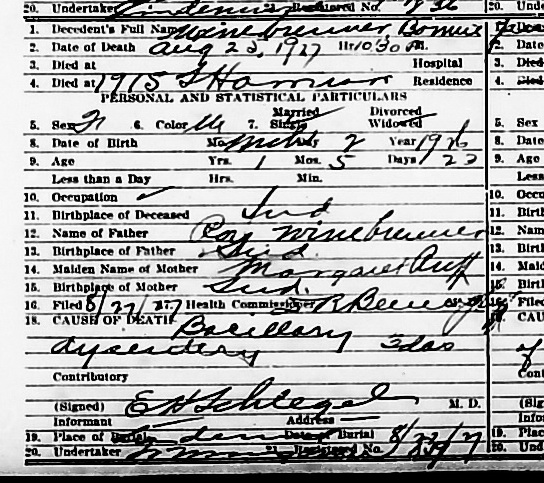 20. Undertaker Registered No. 20. Under
1. Decedent's Full Name Winebrenner, Bonnie 1.
2. Date of Death Aug 25, 1927 Hr 10:30 M. 2. Date
3. Died at Hospital 3. Died
4. Died at 1915 S Harrison Residence 4. Died
PERSONAL AND STATISTICAL PARTICULARS
Married Divorced
5. Sex F 6. Color W 7. Single Widowed 5. Sex
8. Date of Birth Mo. Mch Day 2 Year 1926 8. Date
9. Age Yrs. 1 Mos. 5 Days 23 9. Age
Less than a Day Hrs. Min. Less
10. Occupation 10. Occu
11. Birthplace of Deceased Ind 11. Birth
12. Name of Father Roy Winebrenner 12. Nam
13. Birthplace of Father Ind. 13. Birth
14. Maiden Name of Mother Margaret Ruff 14. Maid
15. Birthplace of Mother Ind. 15. Birth
16. Filed 8/27/27 Health Commissioner M. D.
18. CAUSE OF DEATH Bacillary CAU
dysentery 3 das of
Contributory Cont
(Signed) E H Schlegel M. D. (Sig
Informant Address Info
19. Place of Burial Date of Burial 8/ /27 19. Place
20. Undertaker 21. Registered No. 20. Under